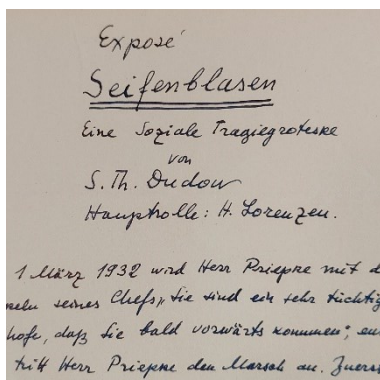 Exposé
Seifenblasen
Eine Soziale Tragiegroteske
von
S. Th. Dudow
Hauptrolle: H. Lorenzen.
1 März 1932 wird Herr Priepke mit d
seines Chefs „Sie sind ein sehr tüchtig
hofe, daß Sie bald vorwärts kommen",
tritt Herr Priepke den Marsch an. Zuers